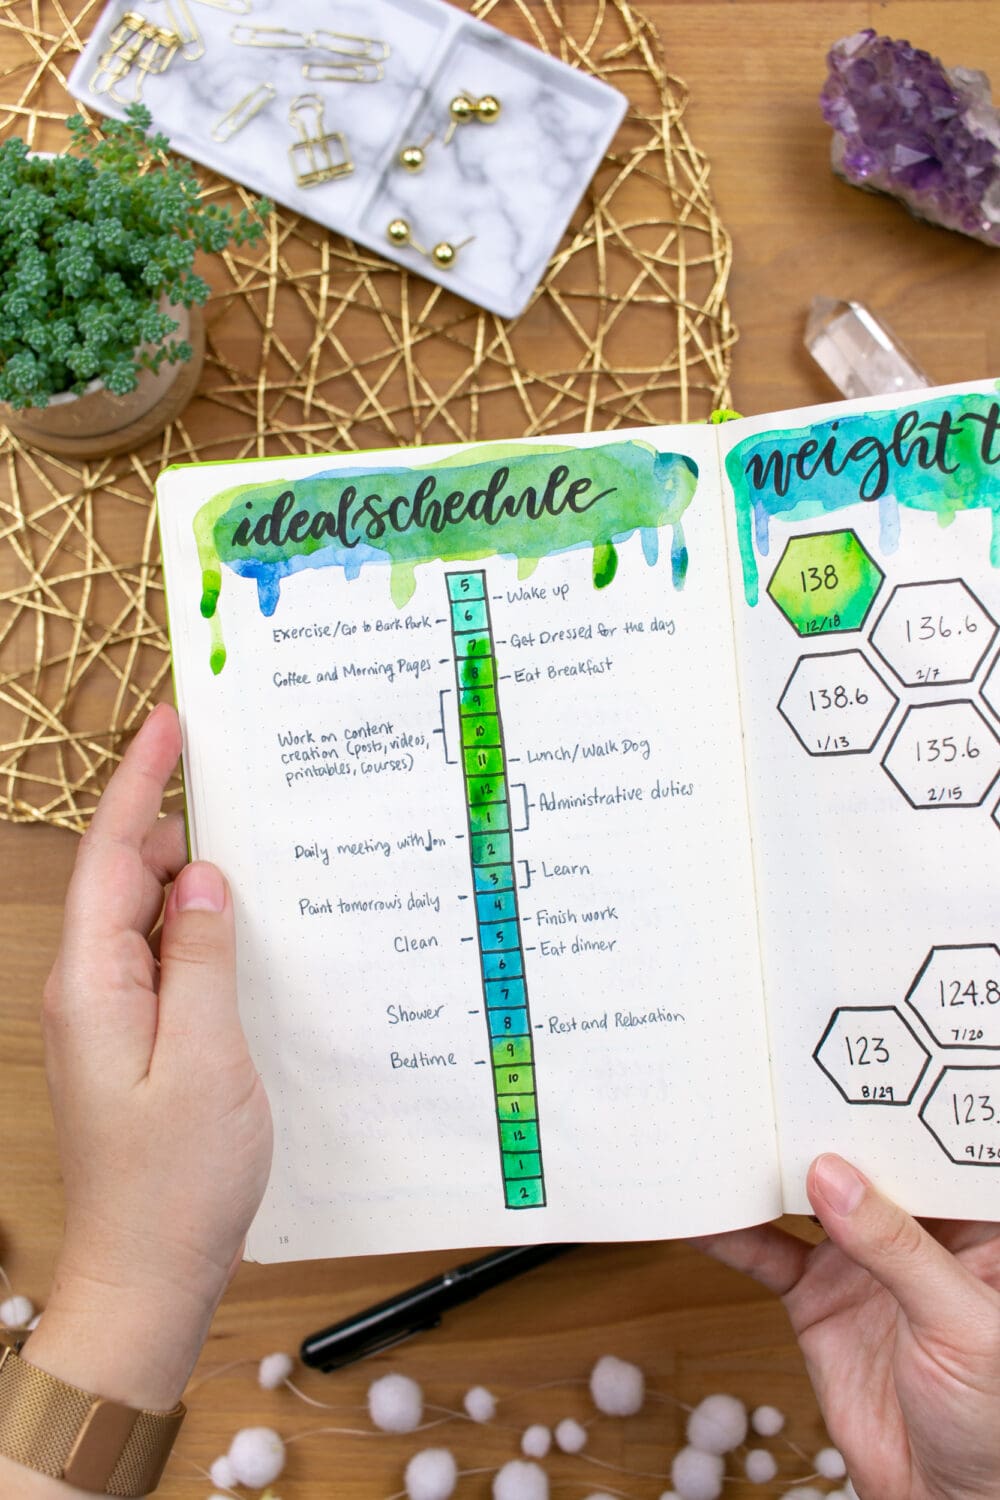 ideal schedule
5
Wake up
6
Exercise/Go to Bark Park
7
Get Dressed for the day
Coffee and Morning Pages
8
Eat Breakfast
9
Work on content
creation (posts, videos,
printables, courses)
10
11
Lunch/Walk Dog
12
Administrative duties
1
Daily meeting with Jon
2
3
Learn
Paint tomorrow's daily
4
Finish work
Clean
5
Eat dinner
6
7
Shower
8
Rest and Relaxation
Bedtime
9
10
11
12
1
2
18
weight t
138
12/18
136.6
2/7
138.6
1/13
135.6
2/15
124.8
7/20
123
8/29
123.
9/30